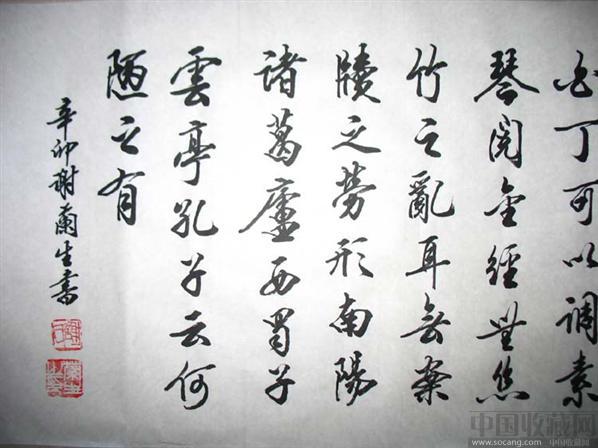 白丁可以調素
琴閱金經無絲
竹之亂耳無案
牘之勞形南陽
諸葛廬西蜀子
雲亭孔子云何
陋之有
辛卯謝蘭生書
中国收藏网
www.socang.com